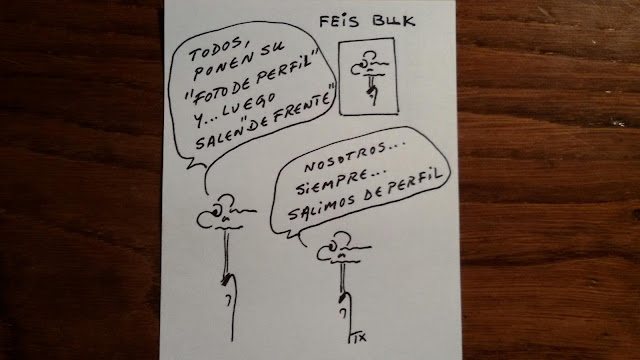 FEIS BUK
TODOS,
PONEN SU
"FOTO DE PERFIL"
Y... LUEGO
SALEN "DE FRENTE"
NOSOTROS...
SIEMPRE...
SALIMOS DE PERFIL
TX